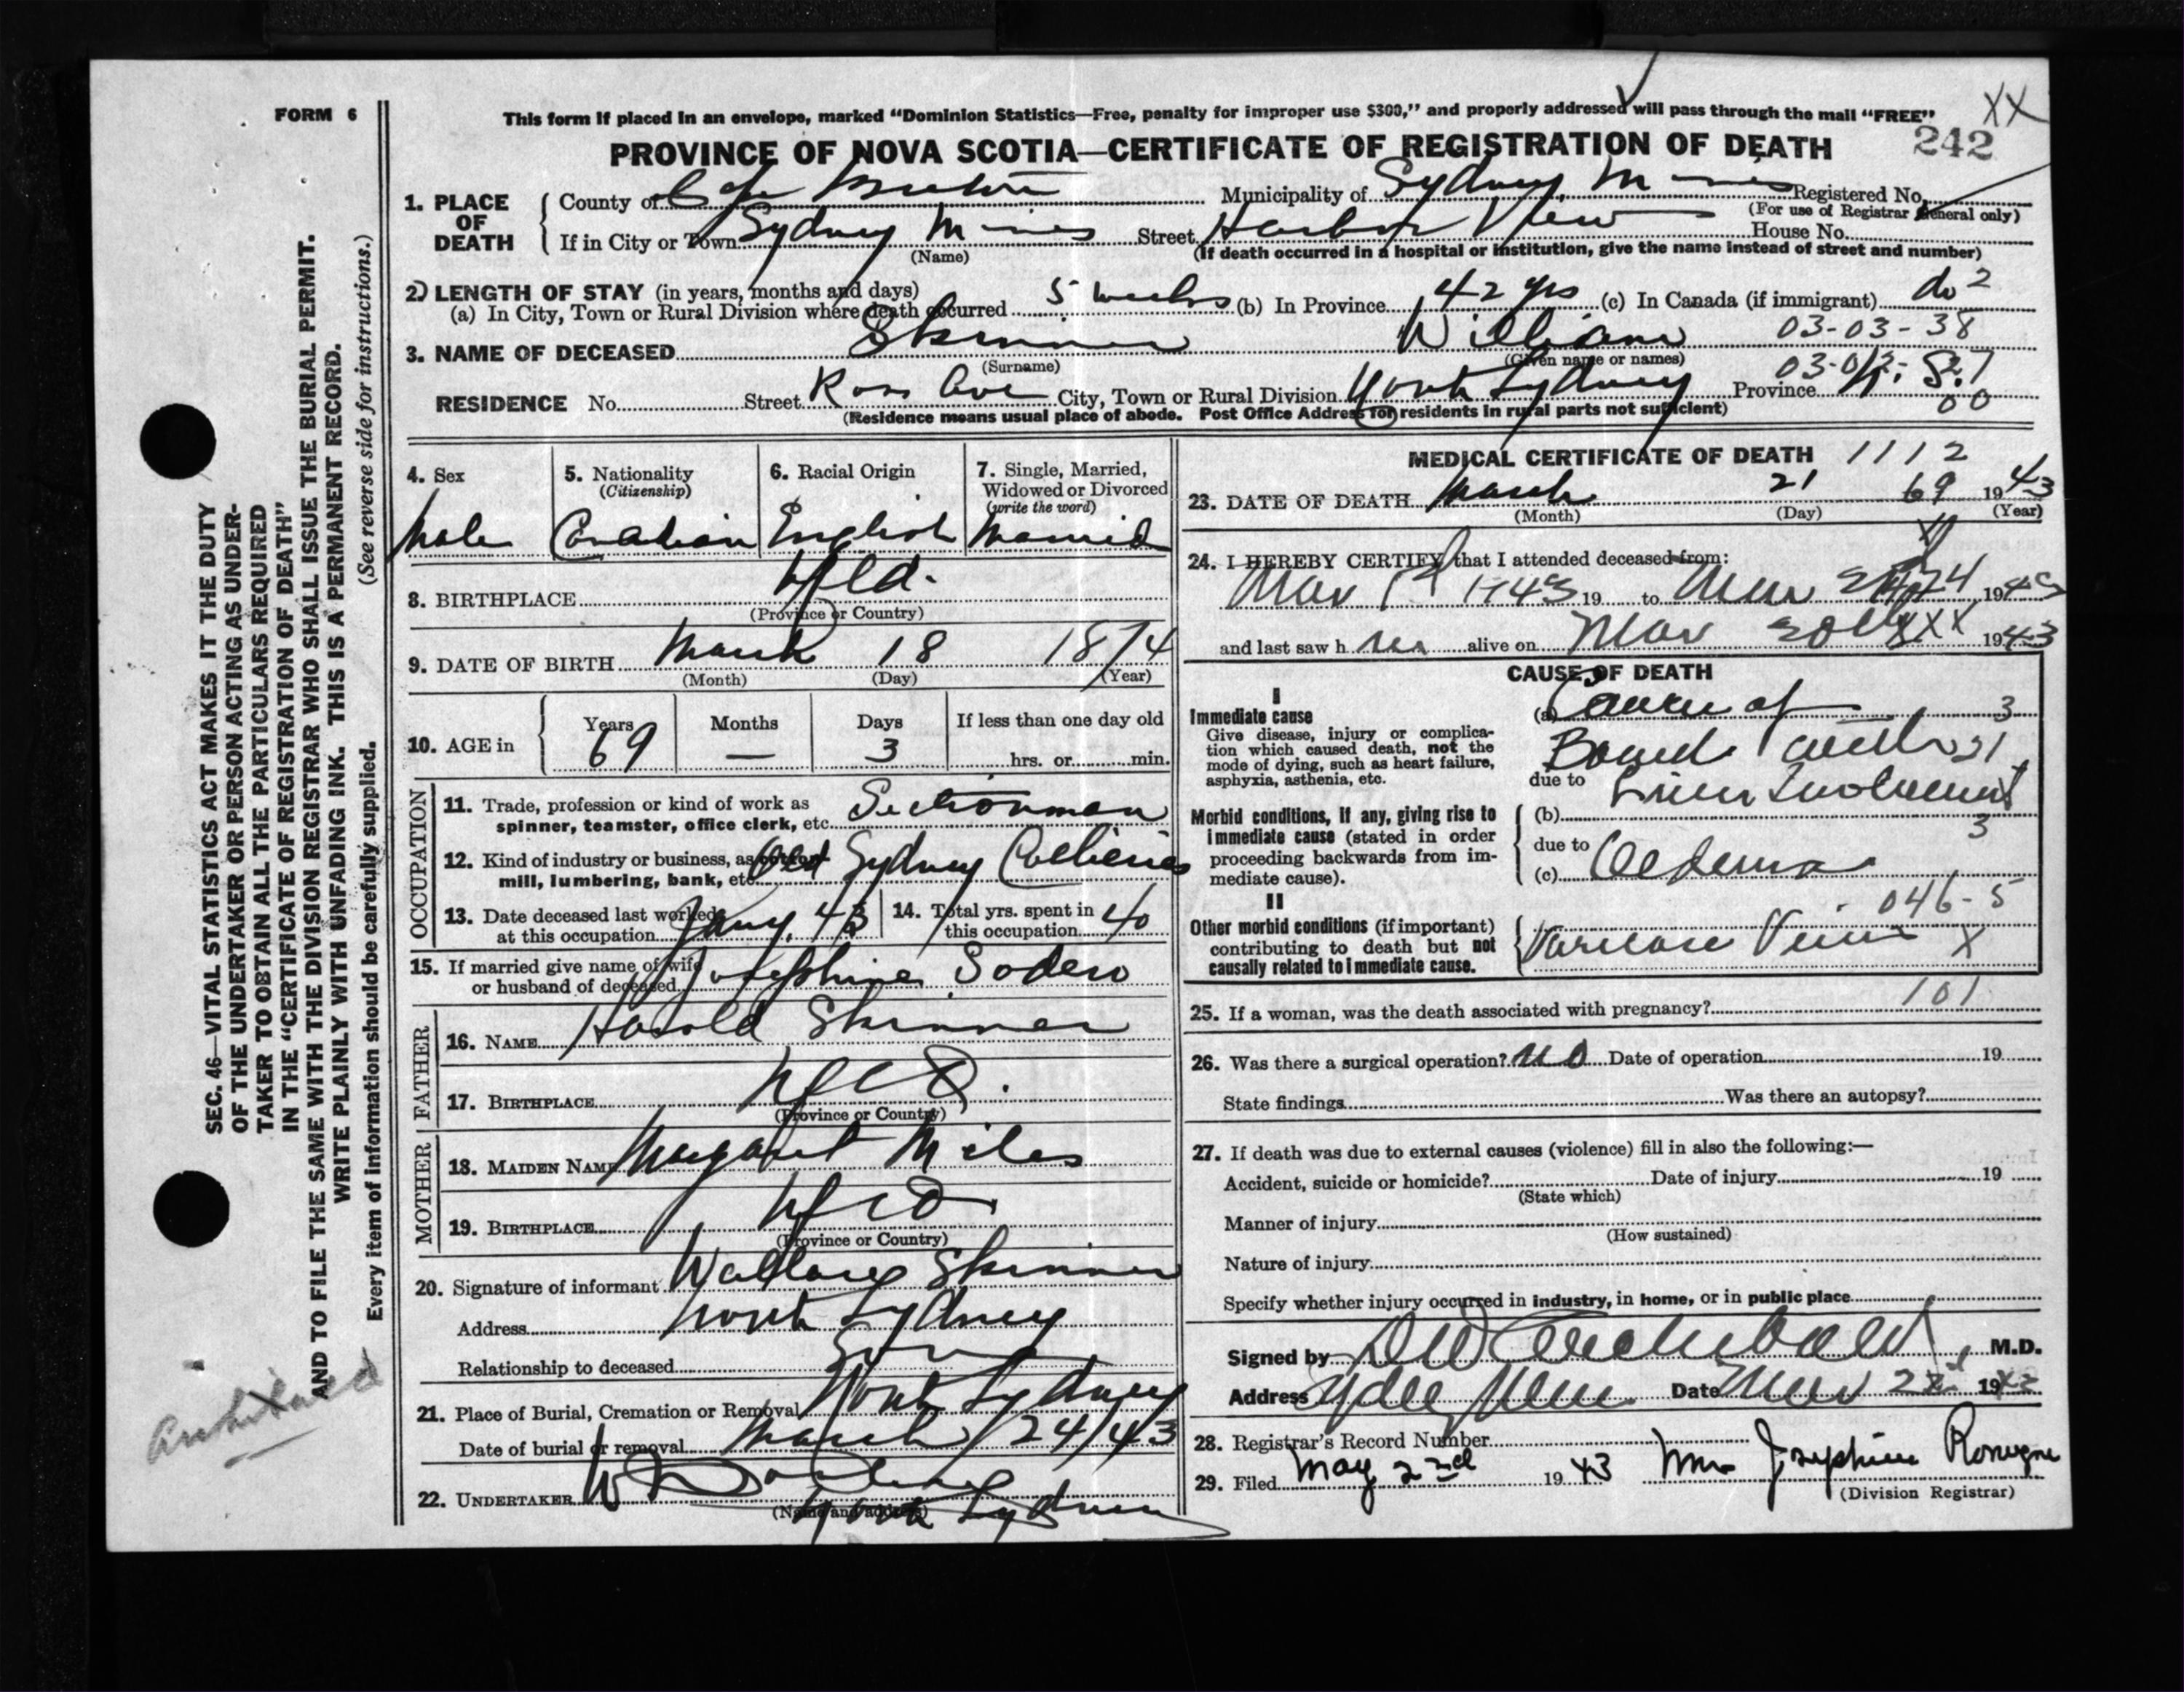 FORM 6
This form if placed in an envelope, marked "Dominion Statistics—Free, penalty for improper use $300," and properly addressed will pass through the mail "FREE"
XX
PROVINCE OF NOVA SCOTIA—CERTIFICATE OF REGISTRATION OF DEATH 242
1. PLACE OF DEATH
County of Cape Breton Municipality of Sydney Mines Registered No.
(For use of Registrar General only)
If in City or Town Sydney Mines Street Harbor View House No.
(Name) (If death occurred in a hospital or institution, give the name instead of street and number)
2. LENGTH OF STAY (in years, months and days)
(a) In City, Town or Rural Division where death occurred 5 weeks (b) In Province 42 yrs (c) In Canada (if immigrant) do 2
03-03-38
3. NAME OF DECEASED Skinner William
(Surname) (Given name or names)
RESIDENCE No. Street Ross Ave City, Town or Rural Division North Sydney Province N. S.
00
(Residence means usual place of abode. Post Office Address for residents in rural parts not sufficient)
4. Sex
Male
5. Nationality
(Citizenship)
Canadian
6. Racial Origin
English
7. Single, Married, Widowed or Divorced
(write the word)
Married
8. BIRTHPLACE Nfld.
(Province or Country)
9. DATE OF BIRTH March 18 1874
(Month) (Day) (Year)
10. AGE in
Years Months Days If less than one day old
69 — 3 hrs. or min.
OCCUPATION
11. Trade, profession or kind of work as
spinner, teamster, office clerk, etc. Sectionman
12. Kind of industry or business, as cotton
mill, lumbering, bank, etc. Old Sydney Collieries
13. Date deceased last worked
at this occupation Jany, 43
14. Total yrs. spent in
this occupation 40
15. If married give name of wife
or husband of deceased Josephine Sodero
FATHER
16. NAME Harold Skinner
17. BIRTHPLACE Nfld.
(Province or Country)
MOTHER
18. MAIDEN NAME Margaret Miles
19. BIRTHPLACE Nfld
(Province or Country)
20. Signature of informant Wallace Skinner
Address North Sydney
Relationship to deceased Son
21. Place of Burial, Cremation or Removal North Sydney
Date of burial or removal March/24/43
22. UNDERTAKER
(Name and address)
North Sydney
MEDICAL CERTIFICATE OF DEATH 1112
23. DATE OF DEATH March 21 69 1943
(Month) (Day) (Year)
24. I HEREBY CERTIFY that I attended deceased from:
Mar 1943 19 to 1943
and last saw h alive on Mar 20th XXX 1943
CAUSE OF DEATH
I
Immediate cause
Give disease, injury or complication which caused death, not the mode of dying, such as heart failure, asphyxia, asthenia, etc.
(a) Cancer of 3
Bowel with
due to
Liver Involvement
Morbid conditions, if any, giving rise to immediate cause (stated in order proceeding backwards from immediate cause).
(b)
3
due to
(c) Oedema
II
046-5
Other morbid conditions (if important) contributing to death but not causally related to immediate cause.
Varicose Veins X
25. If a woman, was the death associated with pregnancy? 101
26. Was there a surgical operation? no Date of operation 19
State findings Was there an autopsy?
27. If death was due to external causes (violence) fill in also the following:—
Accident, suicide or homicide? Date of injury 19
(State which)
Manner of injury
(How sustained)
Nature of injury
Specify whether injury occurred in industry, in home, or in public place
Signed by D W Archibald, M.D.
Address Date Mar
28. Registrar's Record Number
29. Filed May 2nd 1943 Mrs Josephine
(Division Registrar)
SEC. 46—VITAL STATISTICS ACT MAKES IT THE DUTY
OF THE UNDERTAKER OR PERSON ACTING AS UNDER-
TAKER TO OBTAIN ALL THE PARTICULARS REQUIRED
IN THE "CERTIFICATE OF REGISTRATION OF DEATH"
AND TO FILE THE SAME WITH THE DIVISION REGISTRAR WHO SHALL ISSUE THE BURIAL PERMIT.
WRITE PLAINLY WITH UNFADING INK. THIS IS A PERMANENT RECORD.
Every item of information should be carefully supplied. (See reverse side for instructions.)